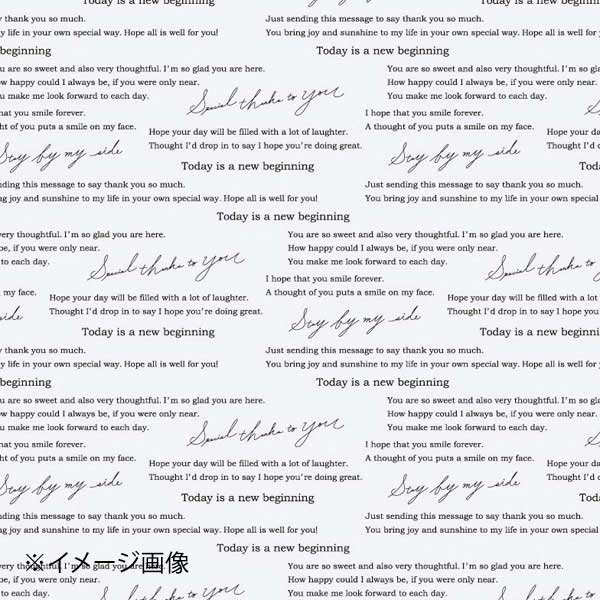 Today is a new beginning
y thank you so much.
Just sending this message to say thank you so much.
y life in your own special way. Hope all is well for you!
You bring joy and sunshine to my life in your own special way. Hope all
beginning
Today is a new beginning
u are so sweet and also very thoughtful. I'm so glad you are here.
You are so sweet and also very thoughtful. I'm so gla
ow happy could I always be, if you were only near.
How happy could I always be, if you were only near.
u make me look forward to each day.
You make me look forward to each day.
Special thanks to You
hat you smile forever.
I hope that you smile forever.
ht of you puts a smile on my face.
A thought of you puts a smile on my face.
Hope your day will be filled with a lot of laughter.
Hope your d
Thought I'd drop in to say I hope you're doing great.
Thought I'd
Stay by my side
Stay by my side
Today is a new beginning
Toda
ding this message to say thank you so much.
Just sending this message to say thank you so much.
ng joy and sunshine to my life in your own special way. Hope all is well for you!
You bring joy and sunshine to my life in your own
Today is a new beginning
very thoughtful. I'm so glad you are here.
You are so sweet and also very thoughtful. I'm so glad you are here.
be, if you were only near.
How happy could I always be, if you were only near.
to each day.
You make me look forward to each day.
Special thanks to You
Special thanks to
I hope that you smile forever.
n my face.
A thought of you puts a smile on my face.
Hope your day will be filled with a lot of laughter.
Hope your day will be filled with a lot
Thought I'd drop in to say I hope you're doing great.
Thought I'd drop in to say I hope you'r
side
Stay by my side
Today is a new beginning
Today is a new beginnin
y thank you so much.
Just sending this message to say thank you so much.
y life in your own special way. Hope all is well for you!
You bring joy and sunshine to my life in your own special way. Hope all is well f
beginning
Today is a new beginning
u are so sweet and also very thoughtful. I'm so glad you are here.
You are so sweet and also very thoughtful. I'm so gla
ow happy could I always be, if you were only near.
How happy could I always be, if you were only near.
u make me look forward to each day.
You make me look forward to each day.
Special thanks to You
hat you smile forever.
I hope that you smile forever.
ht of you puts a smile on my face.
A thought of you puts a smile on my face.
Hope your day will be filled with a lot of laughter.
Hope your d
Thought I'd drop in to say I hope you're doing great.
Thought I'd
Stay by my side
Stay by my side
Today is a new beginning
Toda
ding this message to say thank you so much.
Just sending this message to say thank you so much.
ng joy and sunshine to my life in your own special way. Hope all is well for you!
You bring joy and sunshine to my life in your own
Today is a new beginning
※イメージ画像
very thoughtful. I'm so glad you are here.
You are so sweet and also very thoughtful. I'm so glad you are here.
be, if you were only near.
How happy could I always be, if you were only near.
to each day.
You make me look forward to each day.